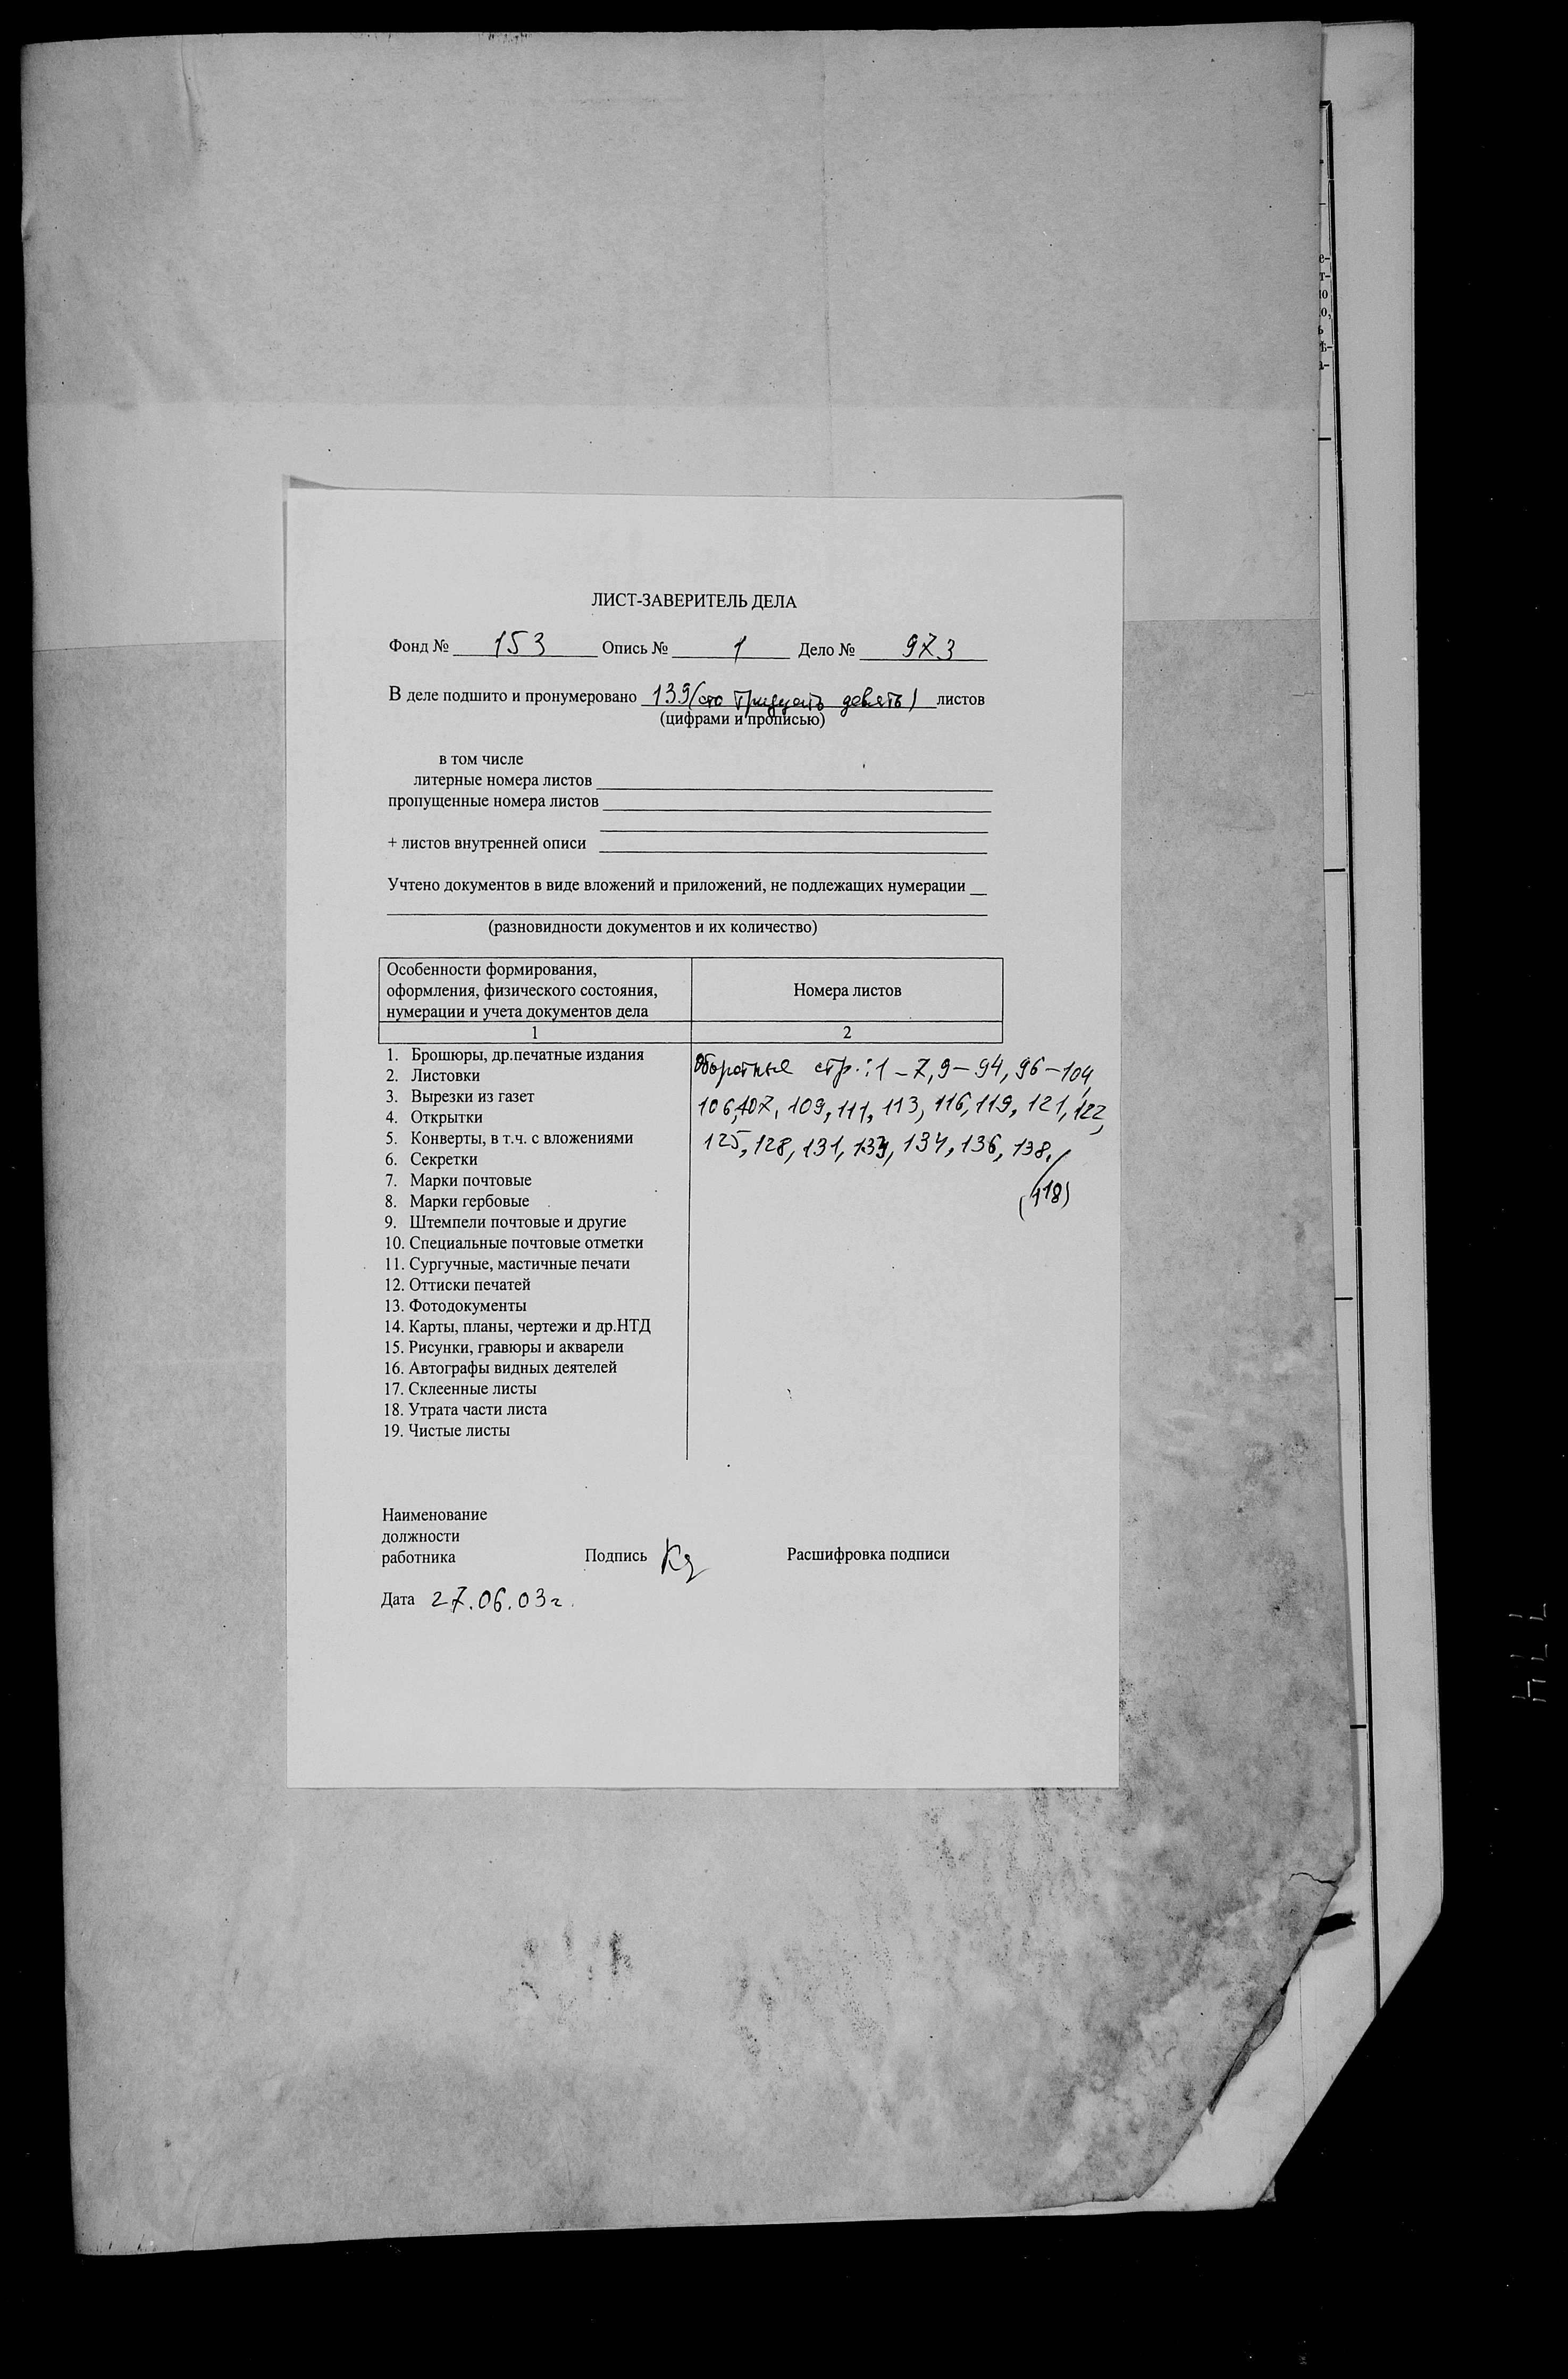 ЛИСТ-ЗАВЕРИТЕЛЬ ДЕЛА
Фонд № 153 Опись № 1 Дело № 973
В деле подшито и пронумеровано 139 (сто тридцать девять) листов
(цифрами и прописью)
в том числе
литерные номера листов
пропущенные номера листов
+ листов внутренней описи
Учтено документов в виде вложений и приложений, не подлежащих нумерации
(разновидности документов и их количество)
Особенности формирования,
оформления, физического состояния,
нумерации и учета документов дела
Номера листов
1 2
1. Брошюры, др.печатные издания
2. Листовки
3. Вырезки из газет
4. Открытки
5. Конверты, в т.ч. с вложениями
6. Секретки
7. Марки почтовые
8. Марки гербовые
9. Штемпели почтовые и другие
10. Специальные почтовые отметки
11. Сургучные, мастичные печати
12. Оттиски печатей
13. Фотодокументы
14. Карты, планы, чертежи и др.НТД
15. Рисунки, гравюры и акварели
16. Автографы видных деятелей
17. Склеенные листы
18. Утрата части листа
19. Чистые листы
Оборотные стр.: 1-7, 9-94, 96-104,
106, 107, 109, 111, 113, 116, 119, 121, 122,
125, 128, 131, 133, 134, 136, 138.
(118)
Наименование
должности
работника
Подпись Расшифровка подписи
Дата 27.06.03г.